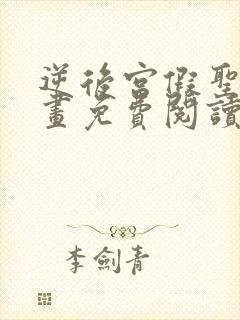 逆後宮假聖
畫免費閱讀
李劍青